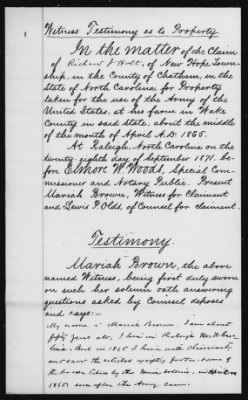 1
Witness Testimony as to Property
In the matter of the Claim
of Richard J Holt, of New Hope Town-
ship, in the County of Chatham, in the
State of North Carolina, for Property
taken for the use of the Army of the
United States, at his farm in Wake
County in said state, about the middle
of the month of April A.D. 1865.
At Raleigh, North Carolina on the
twenty eighth day of September 1871, be-
fore Elmore W. Woods, Special Com-
missioner and Notary Public. Present
Mariah Brown, Witness for Claimant
and Lewis P Olds, of Counsel for claimant.
Testimony.
Mariah Brown, the above
named Witness, being first duly sworn
on such her solemn oath answering
questions asked by Counsel deposes
and says:-
My name is Mariah Brown. I am about
fifty years old, I live in Raleigh North Caro-
lina. But in 1865 I lived with claimant,
and saw the articles
taken by the soldiers, in April
1865, soon after the Army came.